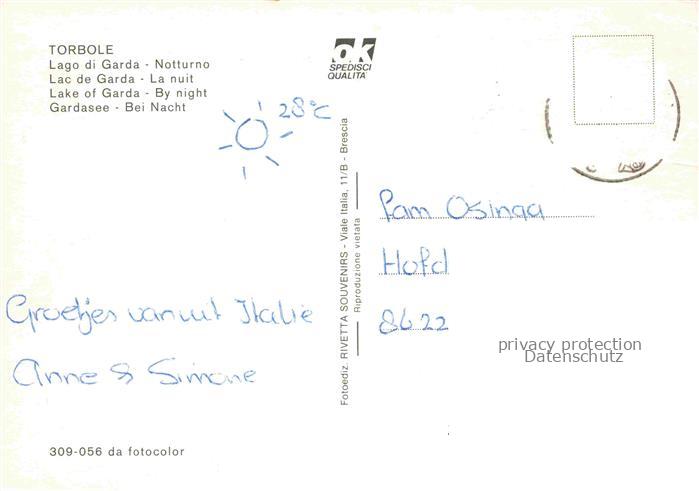 TORBOLE
Lago di Garda - Notturno
Lac de Garda - La nuit
Lake of Garda - By night
Gardasee - Bei Nacht
28°C
Groetjes vanuit Italië
Anne & Simone
309-056 da fotocolor
ok
SPEDISCI
QUALITA'
Fotoediz. RIVETTA SOUVENIRS - Viale Italia, 11/B - Brescia
Riproduzione vietata
Pam Osinga
8622
privacy protection
Datenschutz